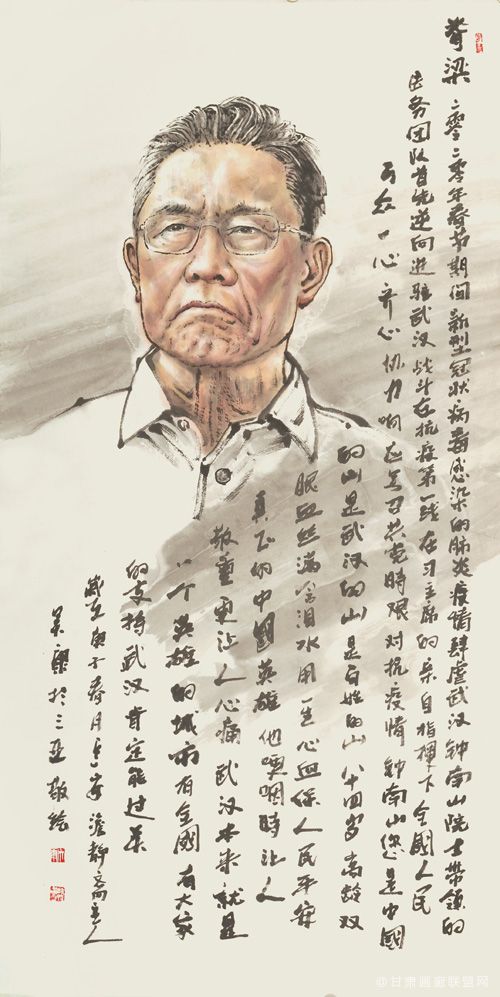 脊梁 二零二零年春节期间新型冠状病毒感染的肺炎疫情肆虐武汉钟南山院士带领的
医务团队首先逆向进驻武汉战斗在抗疫第一线在习主席的亲自指挥下全国人民
万众一心齐心协力响应号召共克时艰对抗疫情钟南山您是中国
的山是武汉的山是百姓的山八十四岁高龄双
眼血丝满含泪水用一生心血保人民平安
真正的中国英雄他哽咽时让人
敬重更让人心痛武汉本来就是
一个英雄的城市有全国有大家
的支持武汉肯定能过关
岁在庚子春月上安澹静斋主人
吴 于三亚敬绘
@甘肃画廊联盟网